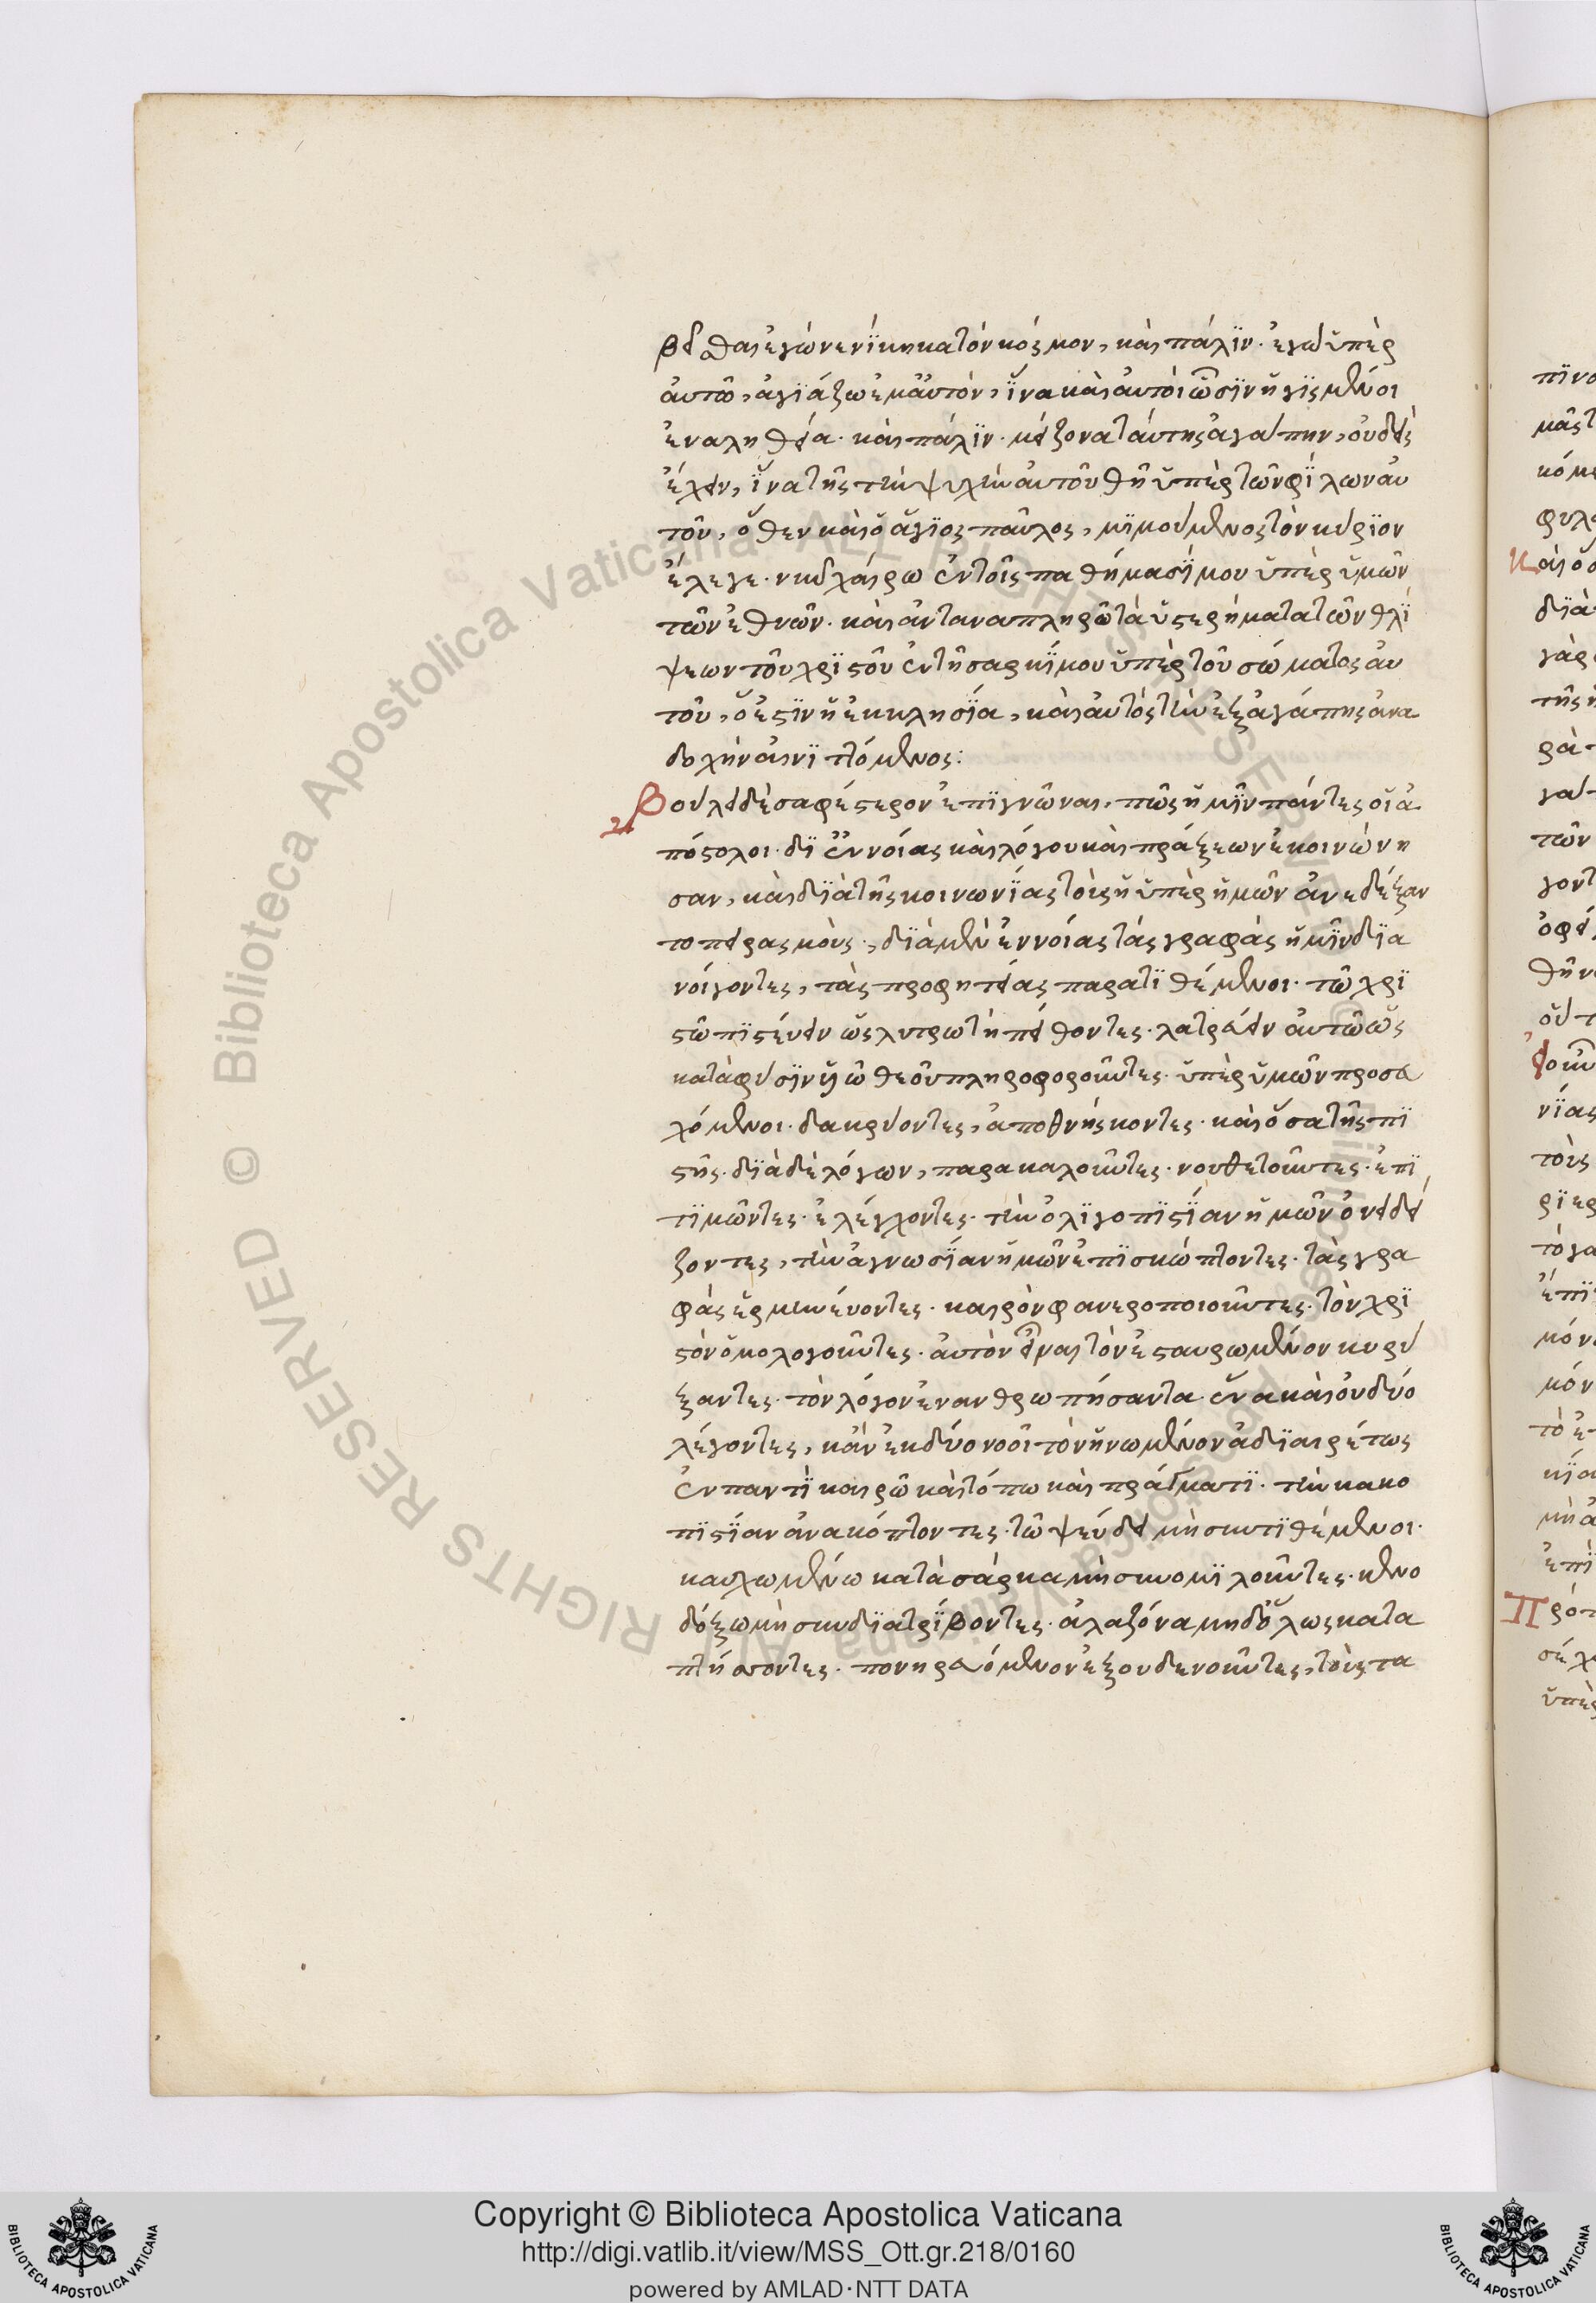 βεῖσθαι ἐγὼ νενίκηκα τὸν κόσμον, καὶ πάλϊν· ἐγὼ ὑπὲρ
αὐτῶ, ἁγϊάζω ἐμαυτὸν, ἵνα καὶ αὐτοὶ ὦσϊν ἡγϊσμένοι
ἐν αληθεία· καὶ πάλϊν· μείζονα ταύτης ἀγάπην, οὐδεὶς
ἔχειν, ἵνα τῆς τὴν ψυχὴν αὐτοῦ θῆ ὑπὲρ τῶν φίλων αυ
τοῦ, ὅθεν καὶ ὁ ἅγϊος παῦλος, μϊμούμενος τὸν κύρϊον
ἔλεγε· νῦν χαίρω ἐν τοῖς παθήμασΐ μου ὑπὲρ ὑμῶν
τῶν ἐθνῶν· καὶ ἀνταναπληρῶ τὰ ὑστερήματα τῶν θλΐ
ψεων τοῦ χρϊστοῦ ἐν τῆ σαρκΐ μου ὑπὲρ τοῦ σώματος αυ
τοῦ, ὅ ἐστϊν ἡ ἐκκλησΐα, καὶ αὐτὸς τὴν ἐξ ἀγάπης ἀνα
δοχὴν αἰνϊττόμενος:
Βούλει δὲ σαφέστερον ἐπϊγνῶναι, πῶς ἡμῖν πάντες οἱ ἀ
πόστολοι· δϊ ἐννοίας καὶ λόγου καὶ πράξεων ἐκοινώνη
σαν, καὶ δϊὰ τῆς κοινωνΐας τοὺς ὑπὲρ ἡμῶν ἀνεδέξαν
το πειρασμοὺς, δϊὰ μὲν ἐννοίας τὰς γραφὰς ἡμῖν δϊα
νοίγοντες, τὰς προφητείας παρατϊθέμενοι· τῶ χρϊ
στῶ πϊστεύειν ὡς λυτρωτῆ πείθοντες· λατρεύειν αὐτῶ ὡς
κατὰ φύσϊν ὑῶ θεοῦ πληροφοροῦντες· ὑπὲρ ὑμῶν προσευ
χόμενοι· δακρύοντες, ἀποθνήσκοντες· καὶ ὅσα τῆς πϊ
στης· δϊὰ δὲ λόγων, παρακαλοῦντες· νουθετοῦντες· ἐπϊ
τϊμῶντες· ἐλέγχοντες· τὴν ὀλϊγοπϊστΐαν ἡμῶν ὀνειδεί
ζοντες, τὴν ἀγνωσΐαν ἡμῶν ἐπϊσκώπτοντες· τὰς γρα
φὰς ἑρμηνεύοντες· καιρὸν φανεροποιοῦντες· τὸν χρϊ
στὸν ὁμολογοῦντες· αὐτὸν εἶναι τὸν ἐσταυρωμένον κηρύ
ξαντες· τὸν λόγον ἐνανθρωπήσαντα· ἕνα καὶ οὐ δύο
λέγοντες, κἂν ἐκ δύο νοοῖτο ἡνωμένον ἀδϊαιρέτως
ἐν παντΐ καιρῶ καὶ τόπω καὶ πράγματϊ· τὴν κακο
πϊστΐαν ἀνακόπτοντες· τῶ ψεύδει μὴ συντϊθέμενοι·
καυχωμένω κατὰ σάρκα μὴ συνομϊλοῦντες· κενο
δόξω μὴ συνδϊατρΐβοντες· ἀλαζόνα μηδ' ὅλως κατα
πτήσοντες· πονηρευόμενον ἐξουδενοῦντες, τοὺς τα
Copyright © Biblioteca Apostolica Vaticana
http://digi.vatlib.it/view/MSS_Ott.gr.218/0160
powered by AMLAD·NTT DATA